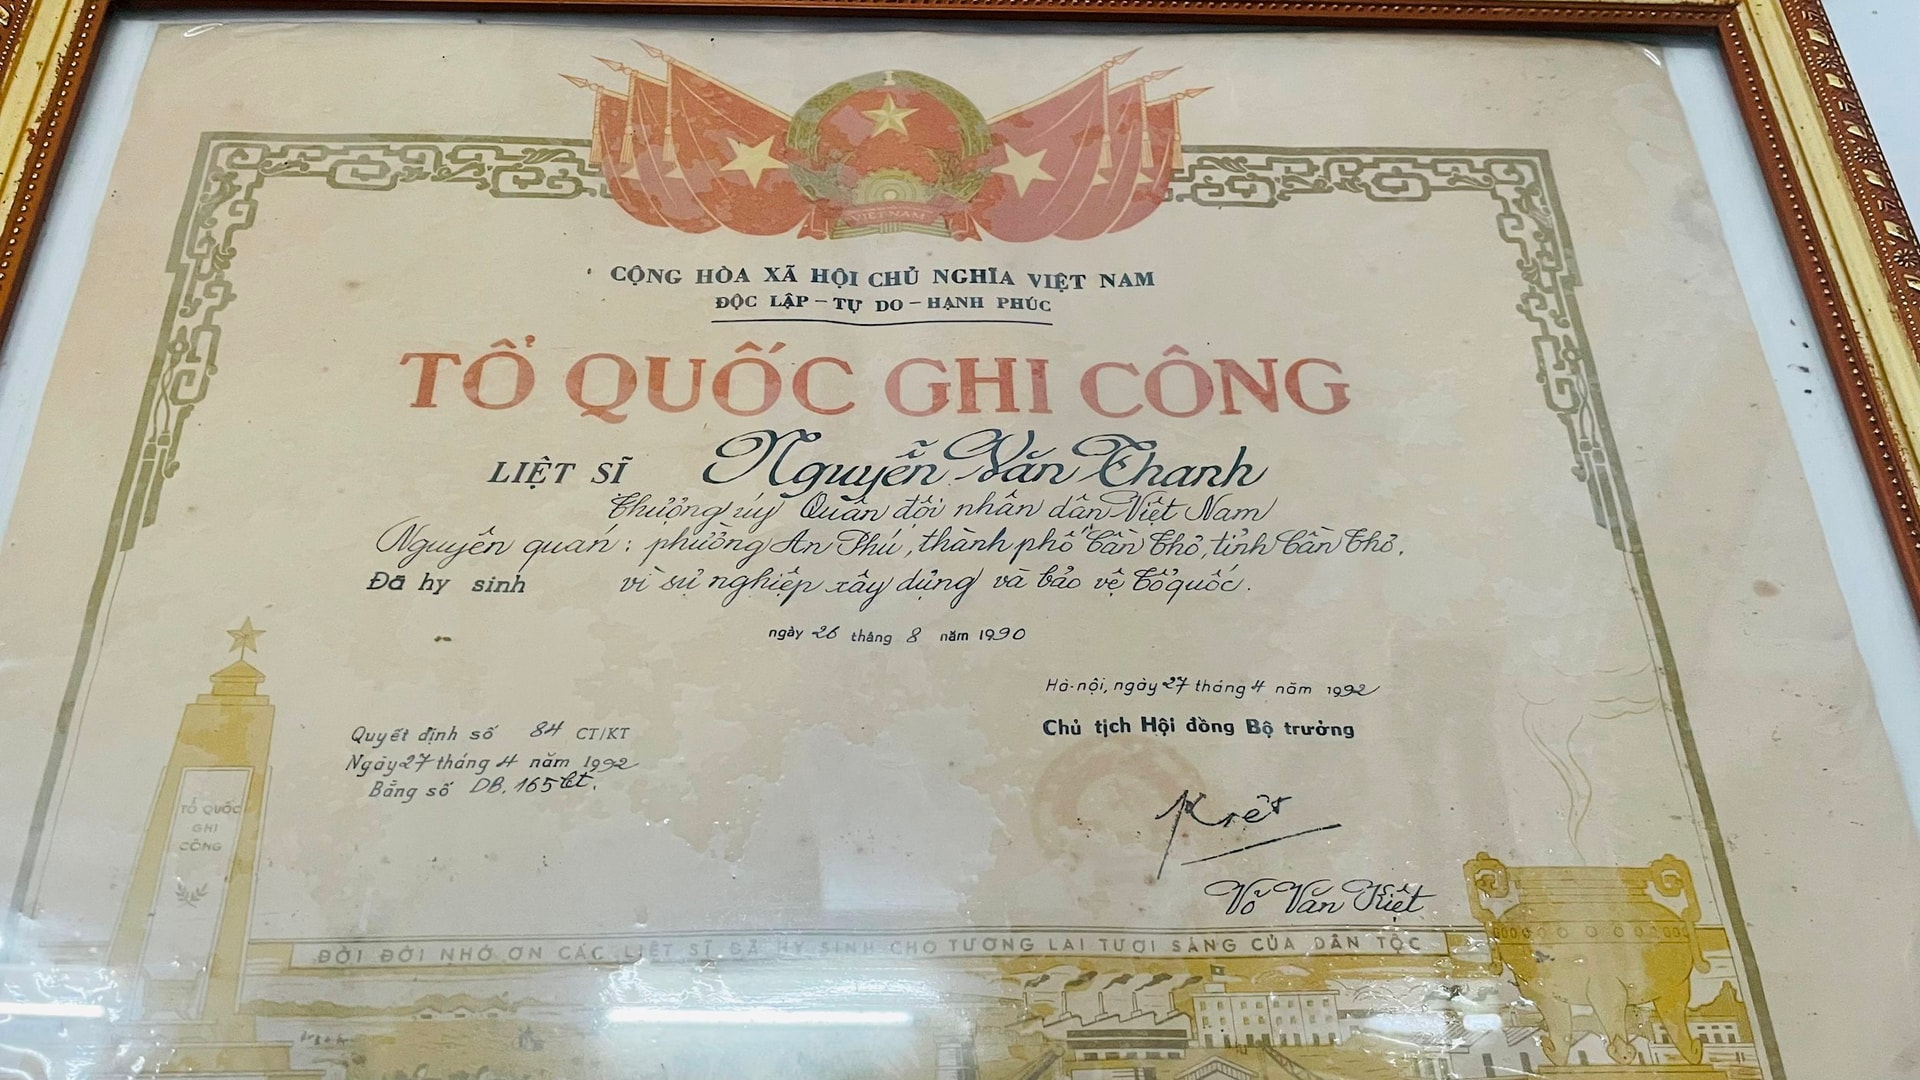 VIỆT NAM
CỘNG HÒA XÃ HỘI CHỦ NGHĨA VIỆT NAM
ĐỘC LẬP - TỰ DO - HẠNH PHÚC
TỔ QUỐC GHI CÔNG
LIỆT SĨ Nguyễn Văn Thanh
Thượng úy Quân đội nhân dân Việt Nam
Nguyên quán: phường An Phú, thành phố Cần Thơ, tỉnh Cần Thơ.
Đã hy sinh vì sự nghiệp xây dựng và bảo vệ Tổ quốc.
ngày 26 tháng 8 năm 1990
Hà-nội, ngày 27 tháng 4 năm 1992
Chủ tịch Hội đồng Bộ trưởng
Quyết định số 84 CT/KT
Ngày 27 tháng 4 năm 1992
Bằng số DB. 165 ct.
Kiệt
Võ Văn Kiệt
TỔ QUỐC
GHI
CÔNG
ĐỜI ĐỜI NHỚ ƠN CÁC LIỆT SĨ ĐÃ HY SINH CHO TƯƠNG LAI TƯƠI SÁNG CỦA DÂN TỘC